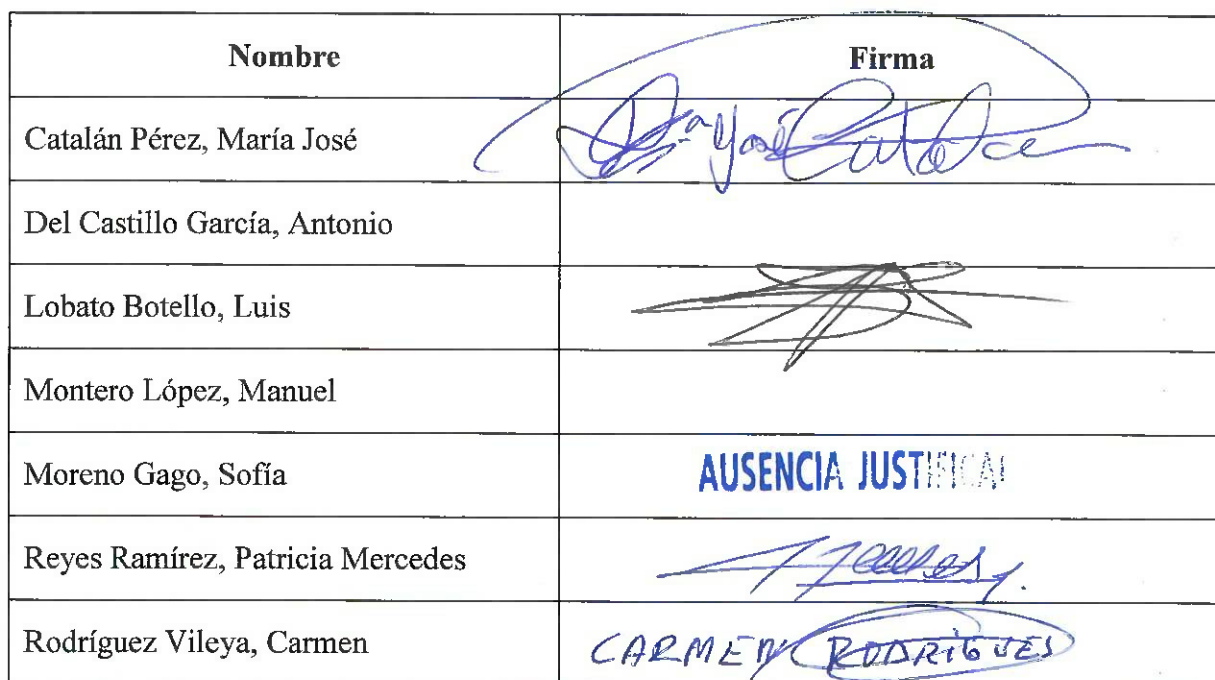 Nombre Firma
Catalán Pérez, María José Mª José Catalá
Del Castillo García, Antonio
Lobato Botello, Luis
Montero López, Manuel
Moreno Gago, Sofía AUSENCIA JUSTIFICA
Reyes Ramírez, Patricia Mercedes
Rodríguez Vileya, Carmen CARMEN RODRIGUES